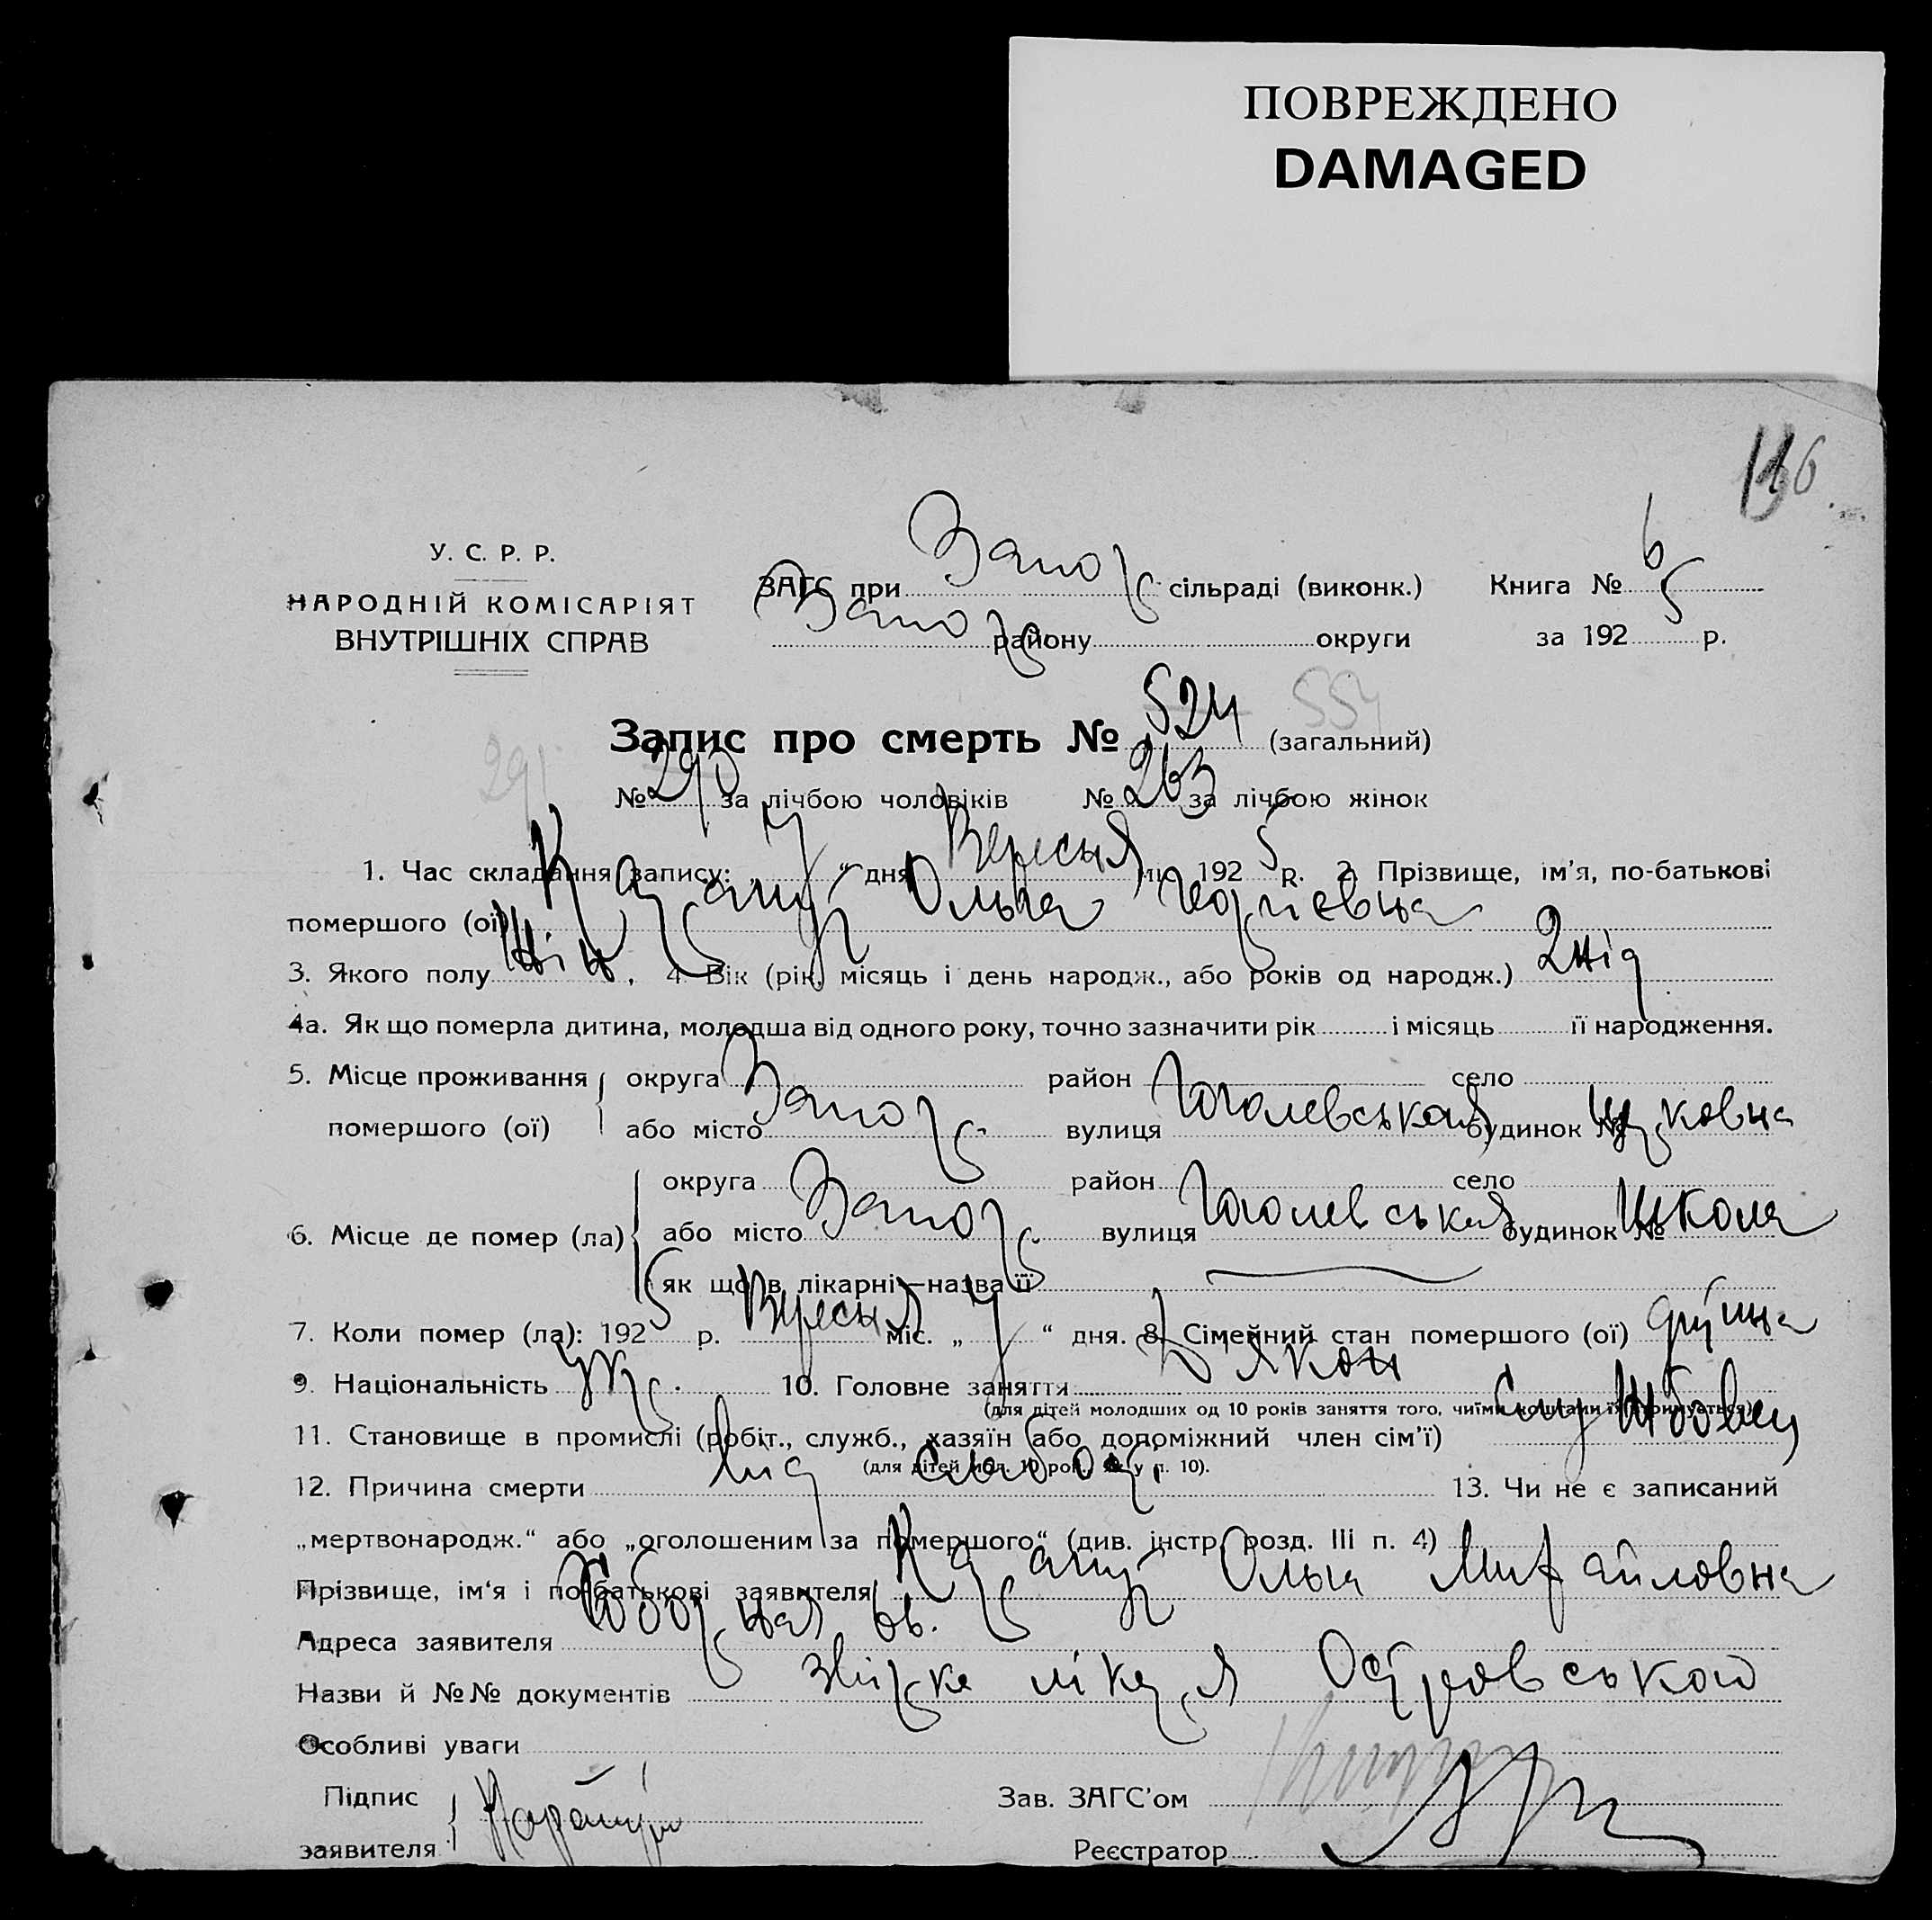 ПОВРЕЖДЕНО
DAMAGED
У. С. Р. Р.
НАРОДНІЙ КОМІСАРІЯТ
ВНУТРІШНІХ СПРАВ
ЗАГС при Запор. сільраді (виконк.)
Запор. району округи
Книга № 6
за 1925 р.
Запис про смерть № 524 (загальний) 554
291 № 290 за лічбою чоловіків № 263 за лічбою жінок
1. Час складання запису: „ 7 “ дня Вересня м. 1925 р. 2. Прізвище, ім'я, по-батькові
помершого (ої) Ольга
3. Якого полу жін, 4. Вік (рік, місяць і день народж., або років од народж.)
4а. Як що померла дитина, молодша від одного року, точно зазначити рік і місяць її народження.
5. Місце проживання помершого (ої) округа район село
або місто Запор. вулиця Гоголевская будинок №
6. Місце де помер (ла) округа район село
або місто Запор. вулиця Гоголевська будинок № Школа
як що в лікарні—назва її
7. Коли помер (ла): 1925 р. Вересня міс. „ 7 “ дня. 8. Сімейний стан помершого (ої)
9. Національність Укр. 10. Головне заняття Дьякон
(для дітей молодших од 10 років заняття того, чиїми коштами їх утримується)
11. Становище в промислі (робіт., служб., хазяїн або допоміжний член сім'ї) Службовец
(для дітей мол. 10 рок., як у п. 10).
12. Причина смерти 13. Чи не є записаний
„мертвонародж.“ або „оголошеним за помершого“ (див. інстр. розд. III п. 4)
Прізвище, ім'я і по-батькові заявителя Ольга Михайловна
Адреса заявителя
Назви й №№ документів лікаря Островського
Особливі уваги
Підпис заявителя
Зав. ЗАГС'ом
Реєстратор